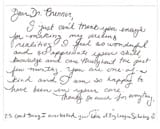 Dear Dr. Brenner,
I just can't thank you enough
for making my dreams
a reality! I feel so wonderful
and so appreciate your skill,
knowledge and care throughout the past
few months. You are one-of-a-
kind and I am so happy to
have been in your care.
Thanks so much for everything
P.S.